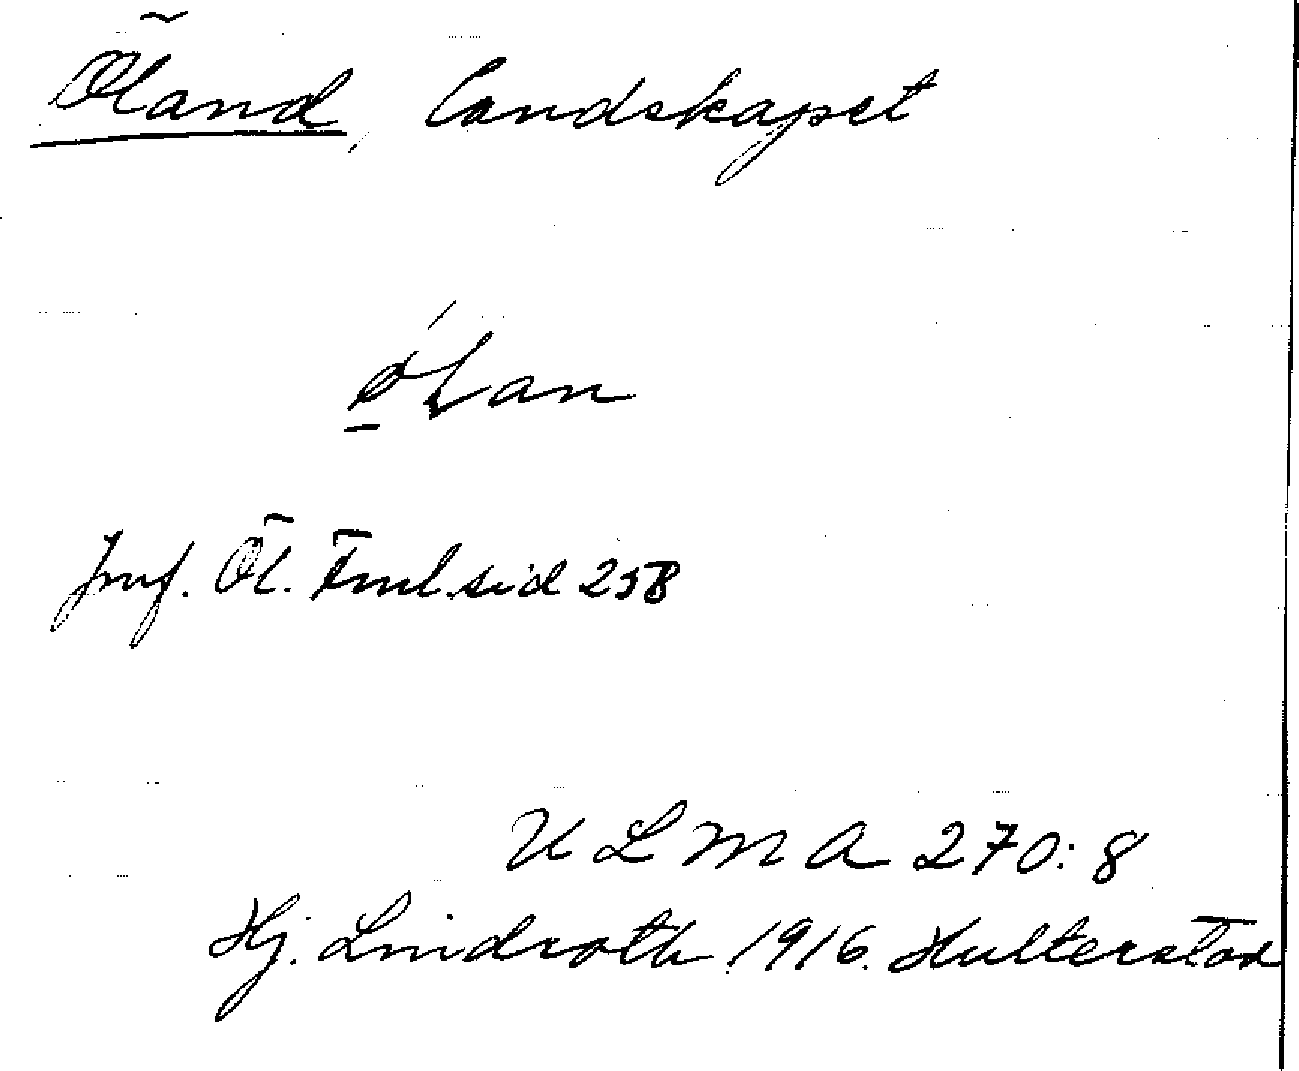 Öland, landskapet
ǿ̠Lan
Jmf. Öl. Fml. sid 258
ULMA 270:8
Hj. Lindroth 1916. Hulterstad